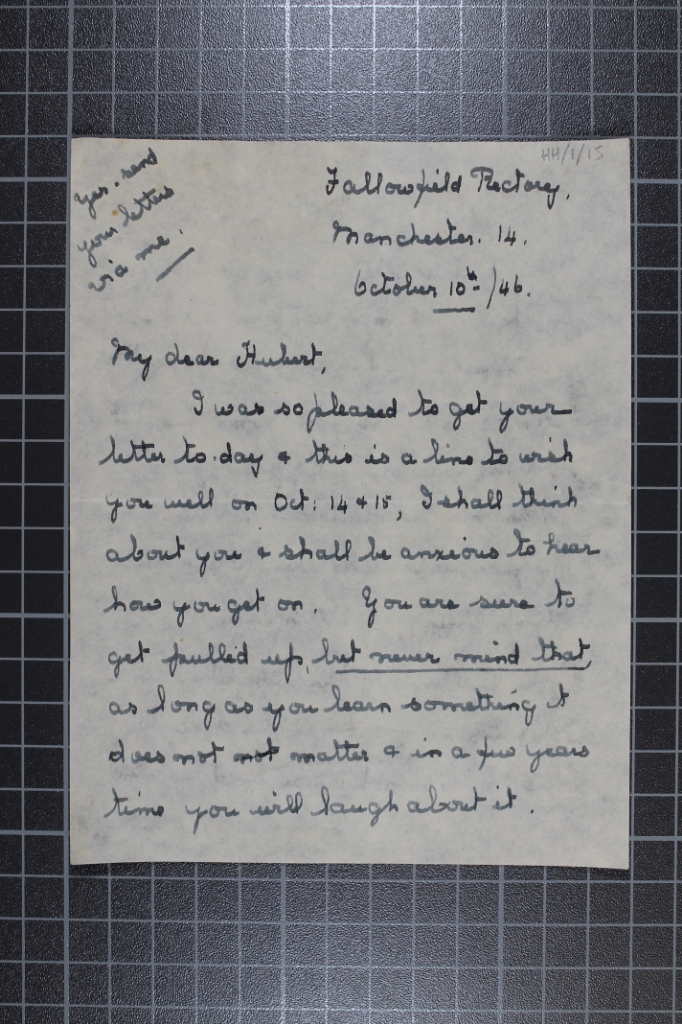 HH/1/15
Yes. send
your letters
via me.
Fallowfield Rectory,
Manchester. 14.
October 10th /46.
My dear Hubert,
I was so pleased to get your
letter to-day & this is a line to wish
you well on Oct: 14 & 15, I shall think
about you & shall be anxious to hear
how you get on. You are sure to
get pulled up, but never mind that,
as long as you learn something it
does not not matter & in a few years
time you will laugh about it.